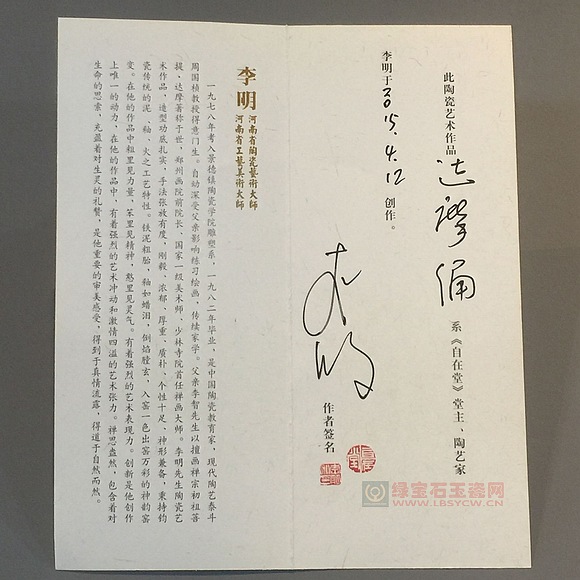 此陶瓷艺术作品 达摩 系《自在堂》堂主、陶艺家
李明于2015.4.12创作。
李明
作者签名
李明
河南省陶瓷藝術大师
河南省工藝美術大师
一九七八年考入景德镇陶瓷学院雕塑系，一九八二年毕业，是中国陶瓷教育家，现代陶艺泰斗
周国桢教授得意门生。自幼深受父亲影响练习绘画，传续家学。父亲李智先生以擅画禅宗初祖菩
提、达摩著称于世，郑州画院前院长、国家一级美术师、少林寺院首任禅画大师。李明先生陶瓷艺
术作品，造型功底扎实，手法张放有度，刚毅、浓郁、厚重、质朴、个性十足、神形兼备，秉持钧
瓷传统的泥、釉、火之工艺特性。铁泥粗胎，釉如蜡泪，倒焰膛玄，入窑一色出窑万彩的神韵窑
变。在他的作品中粗里见力量，笨里见精神，憨里见灵气。有着强烈的艺术表现力。创新是他创作
上唯一的动力，在他的作品中，有着强烈的艺术冲动和激情四溢的艺术张力。禅思盎然，包含着对
生命的思索，充盈着对生灵的礼赞，是他重要的审美感受，得到于真情流露，得道于自然而然。
绿宝石玉瓷网
WWW.LBSYCW.CN